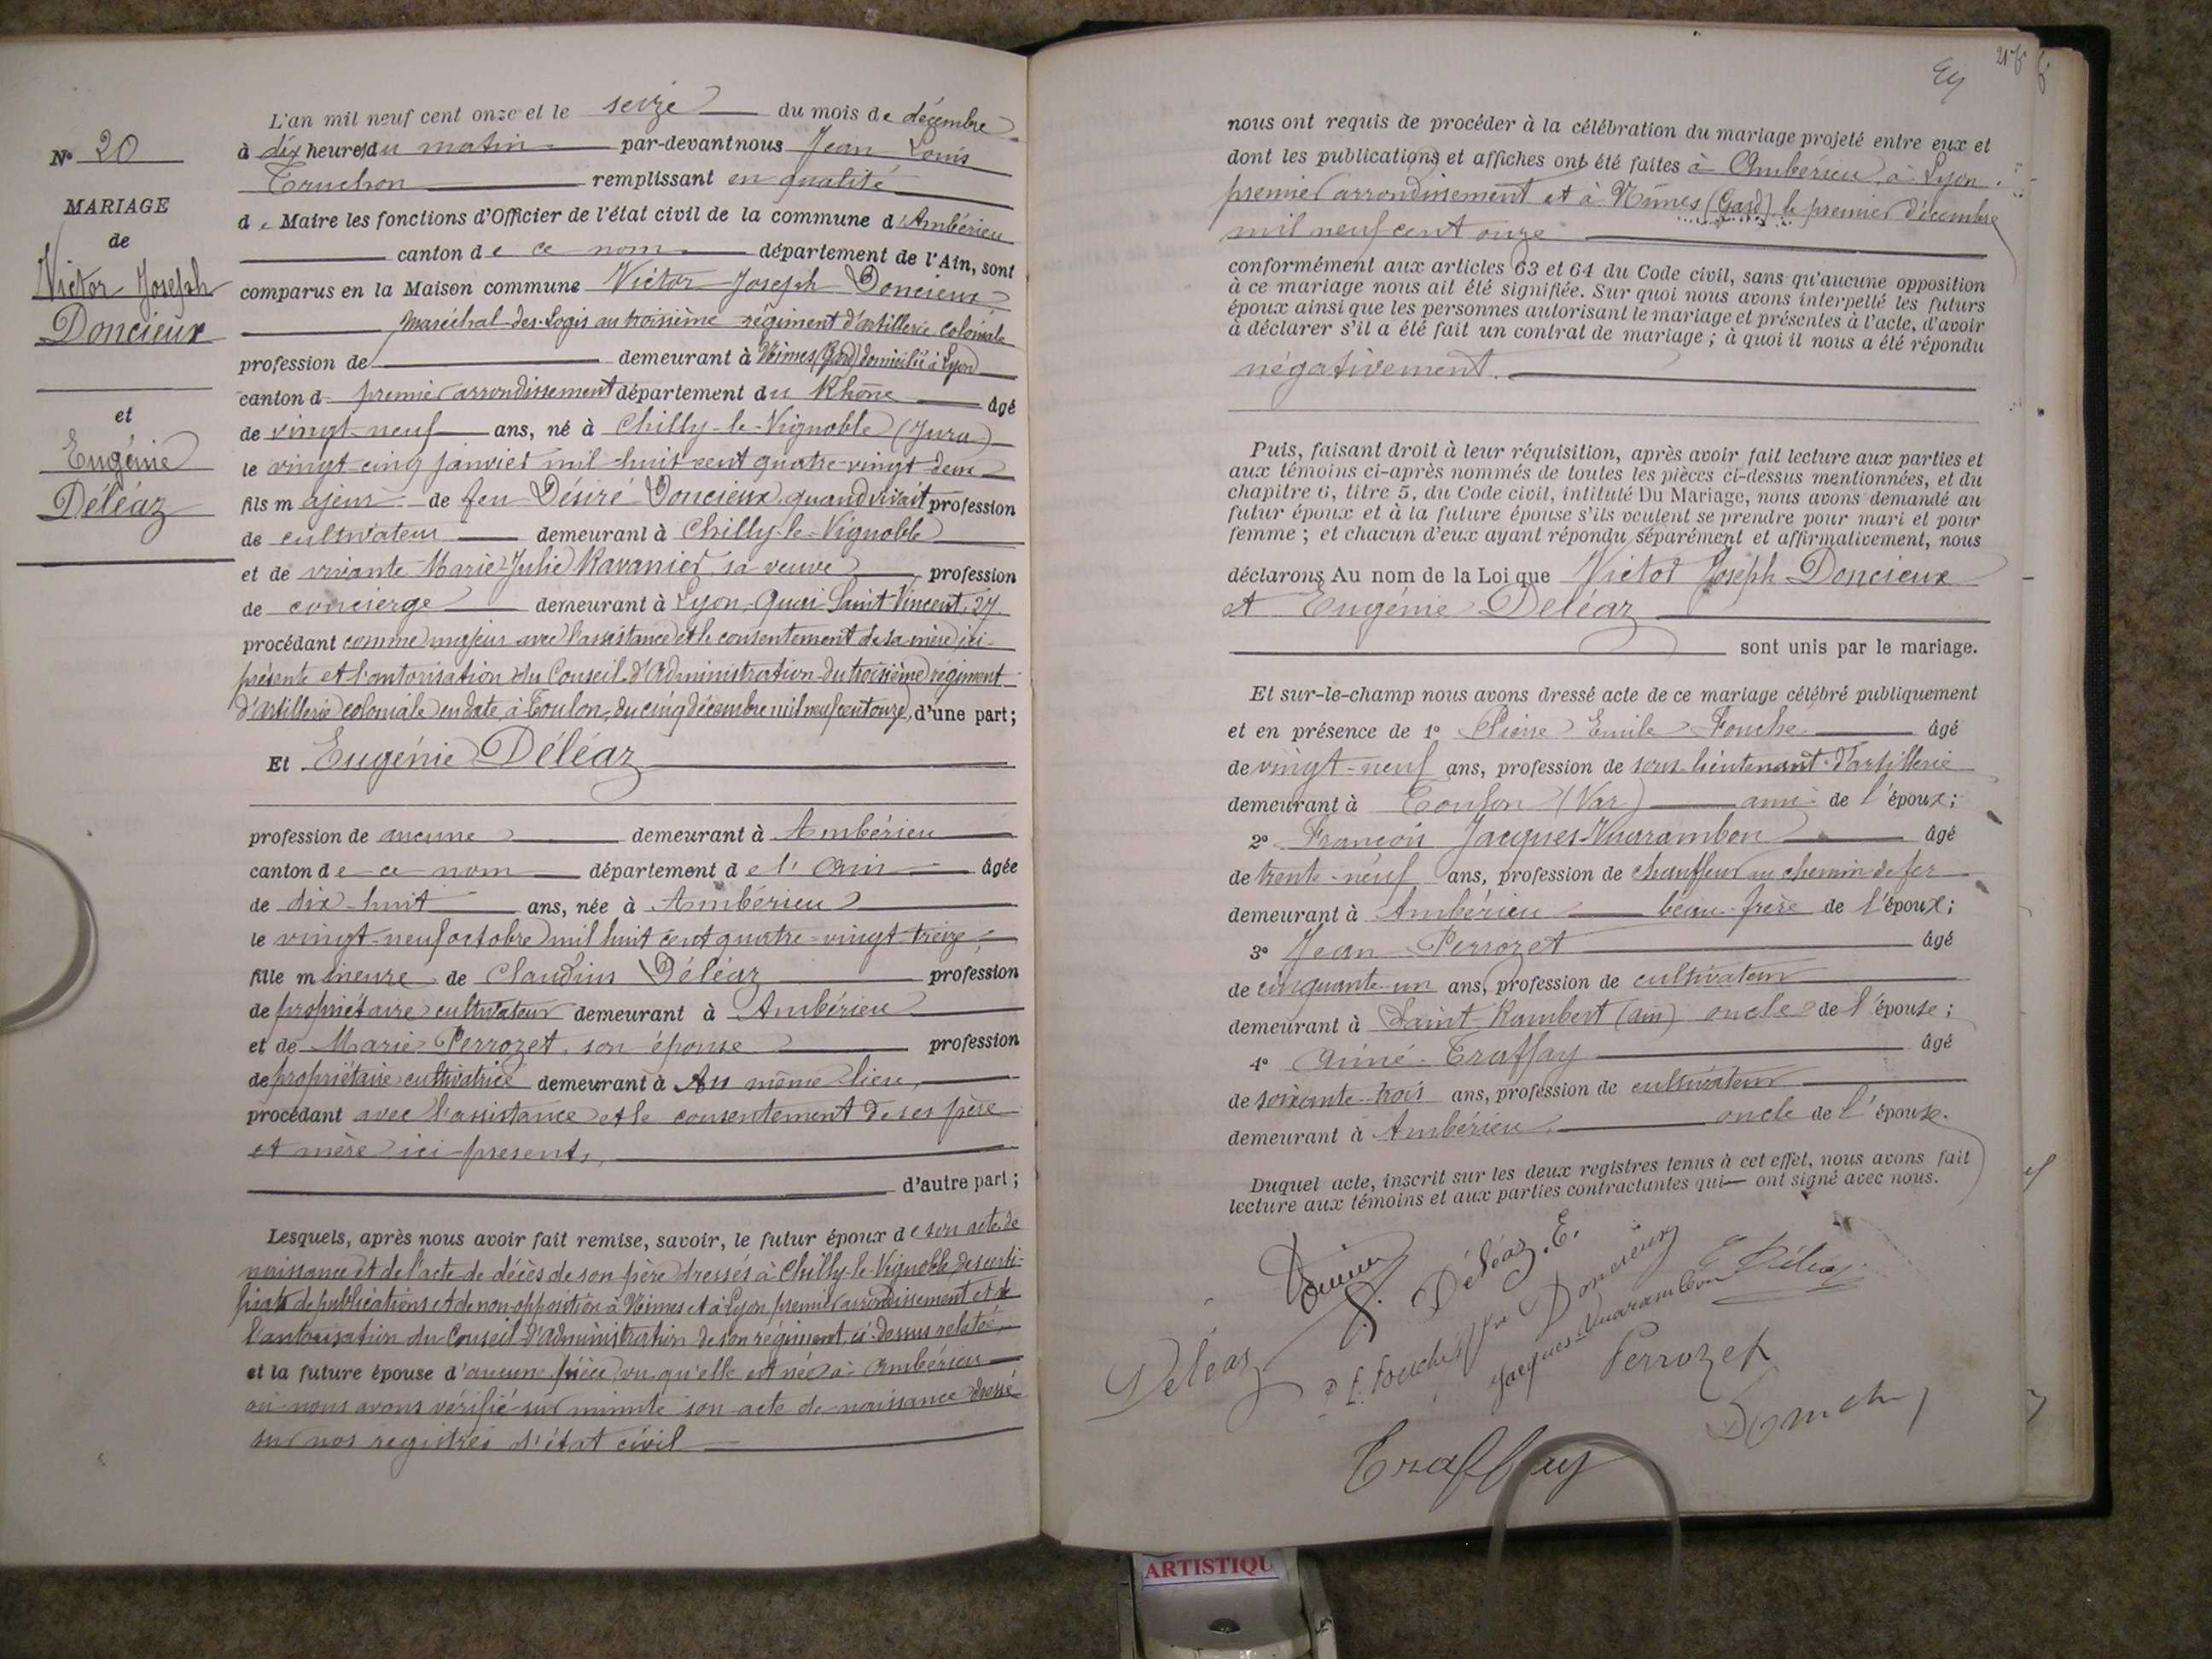 N° 20
MARIAGE
de
Victor Joseph
Doncieux
et
Eugénie
Déléaz
L'an mil neuf cent onze et le seize du mois de décembre
à dix heures du matin par-devant nous Jean Louis
Truchon remplissant en qualité
de Maire les fonctions d'Officier de l'état civil de la commune d'Ambérieu
canton de ce nom département de l'Ain, sont
comparus en la Maison commune Victor Joseph Doncieux
maréchal-des-Logis au troisième régiment d'artillerie coloniale
profession de demeurant à Nîmes (Gard) domicilié à Lyon
canton d premier arrondissement département du Rhône âgé
de vingt-neuf ans, né à Chilly-le-Vignoble (Jura)
le vingt cinq janvier mil huit cent quatre-vingt deux
fils majeur de feu Désiré Doncieux quand vivait profession
de cultivateur demeurant à Chilly-le-Vignoble
et de vivante Marie Julie Ravanier, sa veuve profession
de concierge demeurant à Lyon, Quai Saint-Vincent, 27
procédant comme majeur avec l'assistance et le consentement de sa mère ici
présente et l'autorisation du Conseil d'Administration du troisième régiment
d'artillerie coloniale en date, à Toulon, du cinq décembre mil neuf cent onze, d'une part;
Et Eugénie Déléaz
profession de aucune demeurant à Ambérieu
canton de ce nom département de l'Ain âgée
de dix-huit ans, née à Ambérieu
le vingt-neuf octobre mil huit cent quatre-vingt-treize,
fille mineure de Claudius Déléaz profession
de propriétaire cultivateur demeurant à Ambérieu
et de Marie Perrozet, son épouse profession
de propriétaire cultivatrice demeurant à Au même lieu,
procédant avec l'assistance et le consentement de ses père
et mère ici présents,
d'autre part;
Lesquels, après nous avoir fait remise, savoir, le futur époux de son acte de
naissance et de l'acte de décès de son père dressés à Chilly-le-Vignoble, des certi-
ficats de publications et de non-opposition à Nîmes et à Lyon premier arrondissement et de
l'autorisation du Conseil d'Administration de son régiment, ci-dessus relatée,
et la future épouse d'aucune pièce vu qu'elle est née à Ambérieu
où nous avons vérifié sur minute son acte de naissance dressé
sur nos registres d'état civil
nous ont requis de procéder à la célébration du mariage projeté entre eux et
dont les publications et affiches ont été faites à Ambérieu, à Lyon
premier arrondissement et à Nîmes (Gard) le premier décembre
mil neuf cent onze
conformément aux articles 63 et 64 du Code civil, sans qu'aucune opposition
à ce mariage nous ait été signifiée. Sur quoi nous avons interpellé les futurs
époux ainsi que les personnes autorisant le mariage et présentes à l'acte, d'avoir
à déclarer s'il a été fait un contrat de mariage; à quoi il nous a été répondu
négativement.
Puis, faisant droit à leur réquisition, après avoir fait lecture aux parties et
aux témoins ci-après nommés de toutes les pièces ci-dessus mentionnées, et du
chapitre 6, titre 5, du Code civil, intitulé Du Mariage, nous avons demandé au
futur époux et à la future épouse s'ils veulent se prendre pour mari et pour
femme; et chacun d'eux ayant répondu séparément et affirmativement, nous
déclarons Au nom de la Loi que Victor Joseph Doncieux
et Eugénie Deléaz
sont unis par le mariage.
Et sur-le-champ nous avons dressé acte de ce mariage célébré publiquement
et en présence de 1° Pierre Emile Fouché âgé
de vingt-neuf ans, profession de sous-lieutenant d'artillerie
demeurant à Toulon (Var) ami de l'époux;
2° François Jacques-Vuarambon âgé
de trente-neuf ans, profession de chauffeur au chemin de fer
demeurant à Ambérieu beau-frère de l'époux;
3° Jean Perrozet âgé
de cinquante-un ans, profession de cultivateur
demeurant à Saint-Rambert (Ain) oncle de l'épouse;
4° Aimé Traffay âgé
de soixante-trois ans, profession de cultivateur
demeurant à Ambérieu oncle de l'épouse.
Duquel acte, inscrit sur les deux registres tenus à cet effet, nous avons fait
lecture aux témoins et aux parties contractantes qui ont signé avec nous.
Déléaz. E.
Doncieux
Deléaz
P. E. Fouché
Jacques-Vuarambon
Perrozet
Traffay
ARTISTIQU